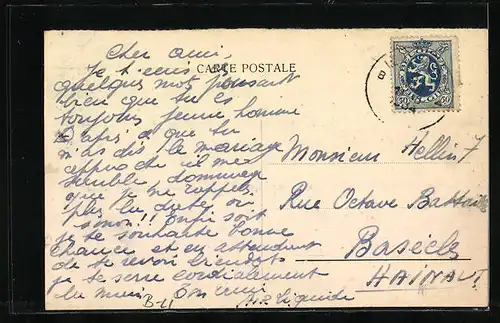 Cher ami,
CARTE POSTALE
Je t'ecris
quelques mots pensant
bien que tu es
toujours jeune homme
D'après ce que tu
m'as dis le mariage
approche il me
semble dommage
que je ne rappele
plus la date ou
sinon!! Enfin soit
je te souhaite bonne
chance et en attendant
de te revoir bientot
je te serre cordialement
la main Ton ami
B-11
Liquide
Monsieur Hellin F
Rue Octave Battaille
Basècles
HAINAUT